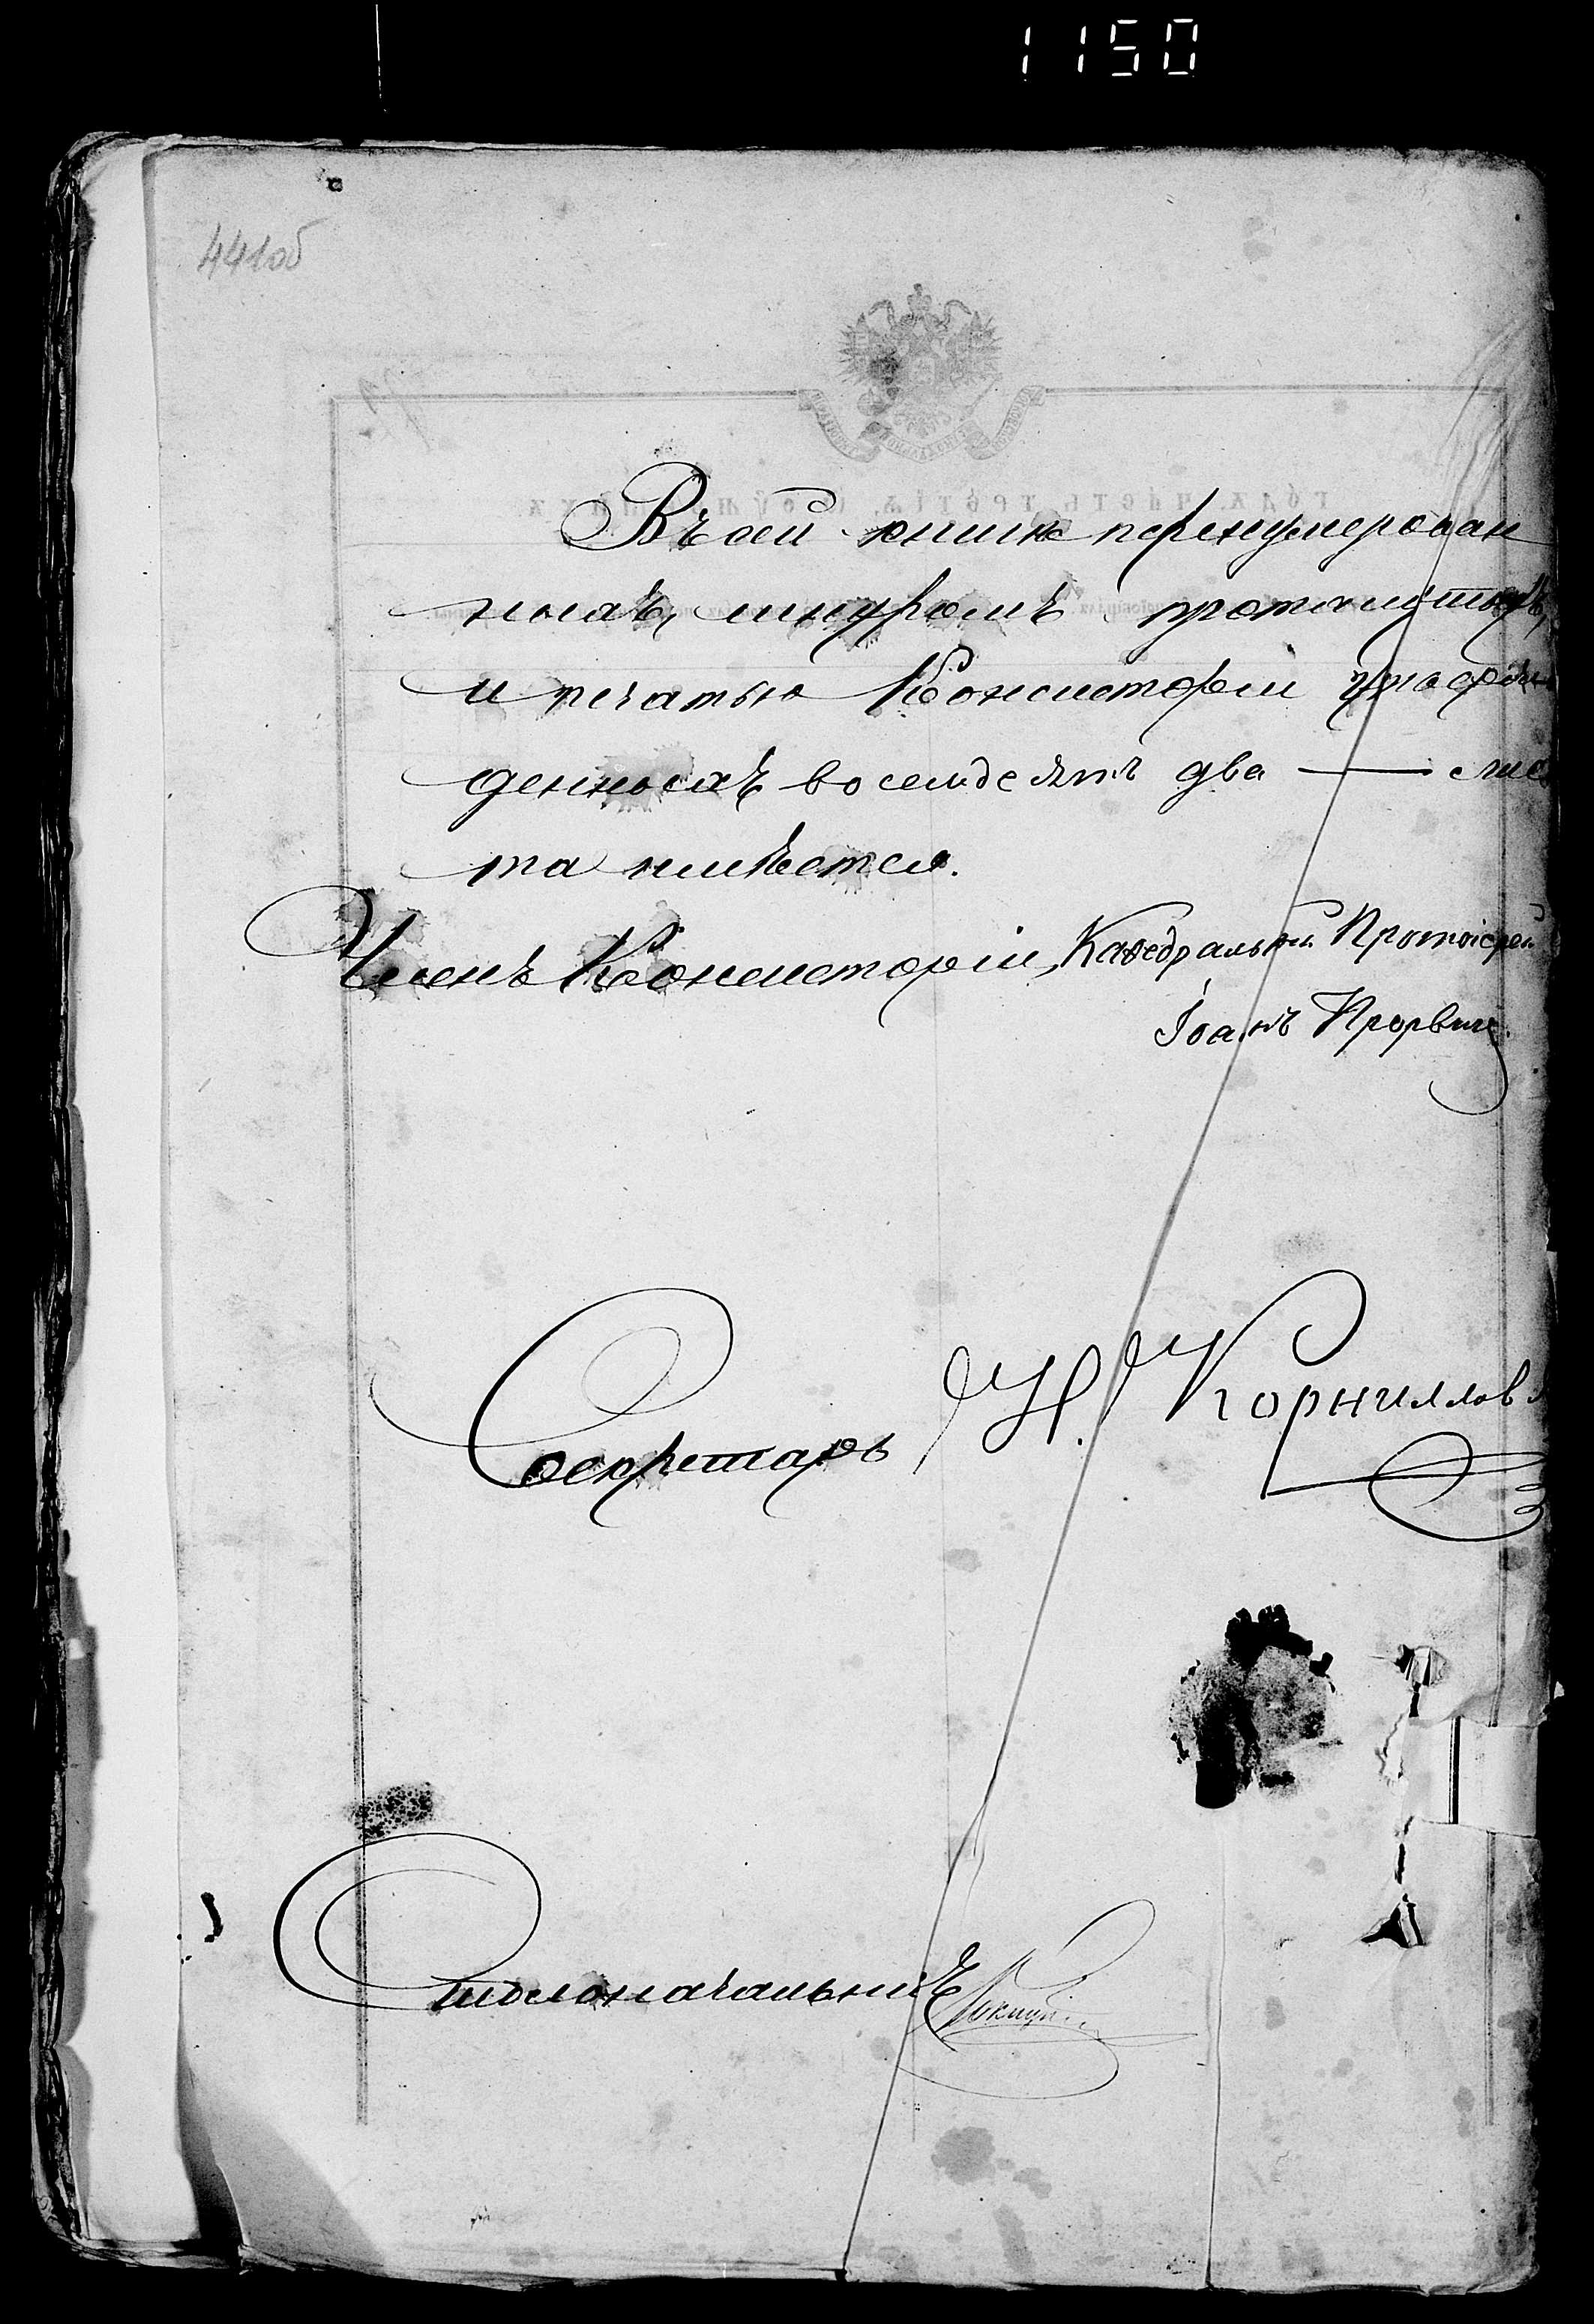 1150
441об
Въ сей книгѣ перенумерован
ныхъ, шнуромъ прошнутыхъ,
и печатью Консисторіи утверж
денныхъ восемьдесятъ два — лис
та имѣется.
Членъ Консисторіи, Каѳедральный Протоіерей
Іоаннъ Прорвичъ.
Секретарь Н. Корниллов
Столоначальникъ